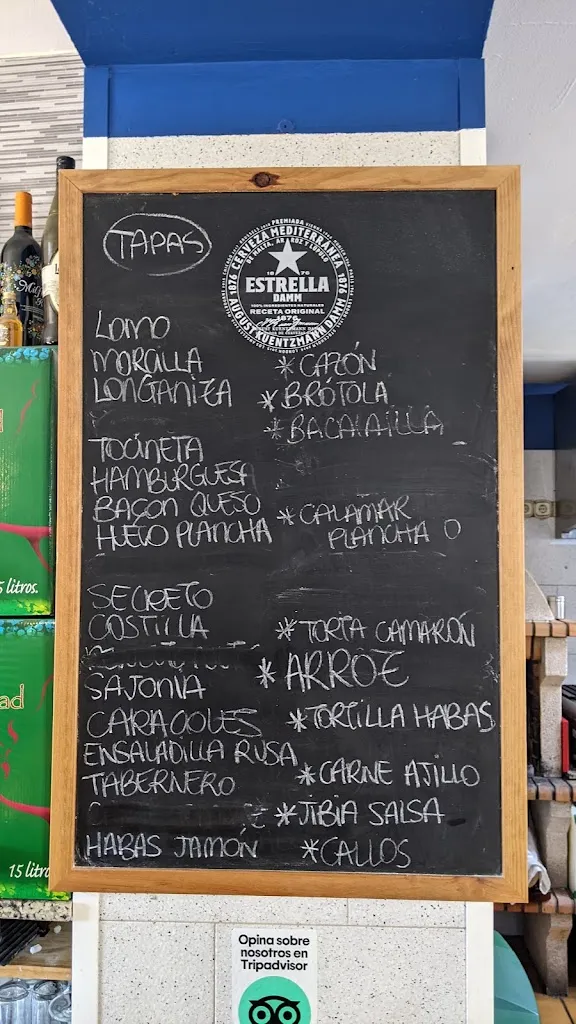 TAPAS
PREMIADA
1876 CERVEZA MEDITERRÁNEA 1876
DE MALTA, ARROZ Y LÚPULO
1876
ESTRELLA
DAMM
100% INGREDIENTES NATURALES
RECETA ORIGINAL
1876
AUGUST KUENTZMANN DAMM
LOMO
MORCILLA
LONGANIZA
TOCINETA
HAMBURGUESA
BACON QUESO
HUEVO PLANCHA
SECRETO
COSTILLA
SAJONIA
CARACOLES
ENSALADILLA RUSA
TABERNERO
HABAS JAMÓN
*CAZÓN
*BRÓTOLA
*BACALAILLA
*CALAMAR
PLANCHA O
*TORTA CAMARÓN
*ARROZ
*TORTILLA HABAS
*CARNE AJILLO
*JIBIA SALSA
*CALLOS
5 litros.
ad
15 litro
Opina sobre
nosotros en
Tripadvisor